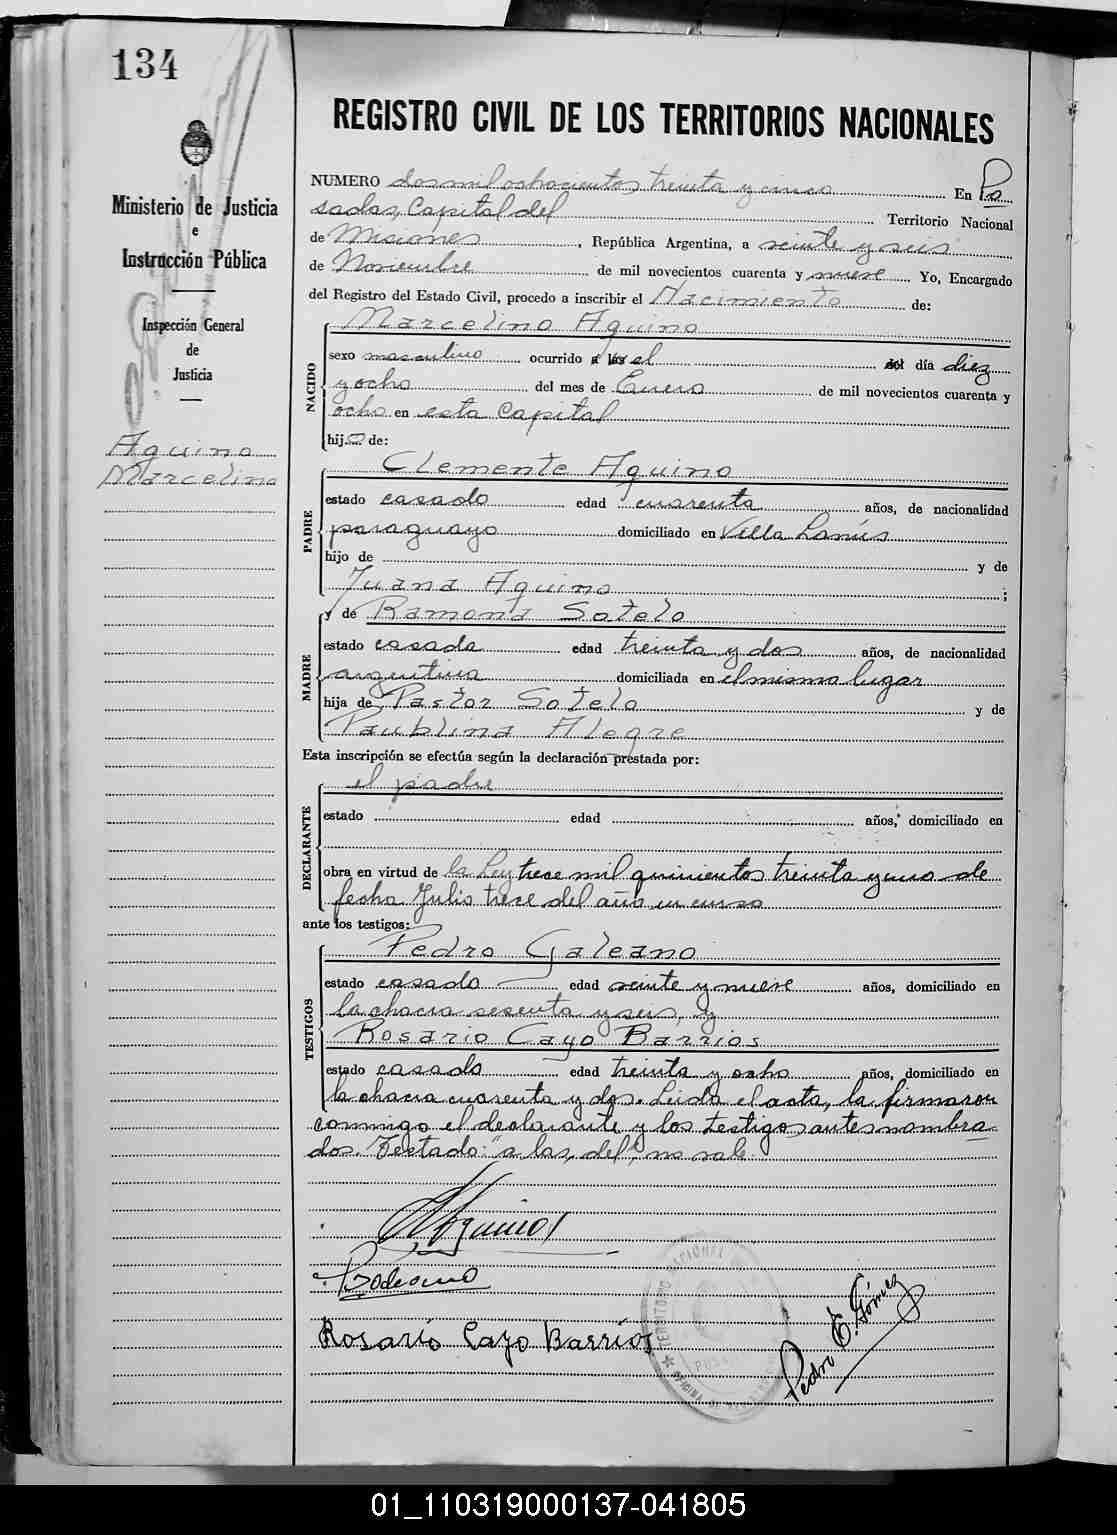 134
Ministerio de Justicia
e
Instrucción Pública
Inspección General
de
Justicia
Aquino
Marcelino
REGISTRO CIVIL DE LOS TERRITORIOS NACIONALES
NUMERO dos mil ochocientos treinta y cinco En Po
sadas, Capital del Territorio Nacional
de Misiones, República Argentina, a veinte y seis
de Noviembre de mil novecientos cuarenta y nueve Yo, Encargado
del Registro del Estado Civil, procedo a inscribir el Nacimiento de:
Marcelino Aquino
NACIDO
sexo masculino ocurrido a las el del día diez
y ocho del mes de Enero de mil novecientos cuarenta y
ocho en esta Capital
hijo de:
Clemente Aquino
PADRE
estado casado edad cuarenta años, de nacionalidad
paraguayo domiciliado en Villa Lanús
hijo de y de
Juana Aquino ;
y de Ramona Sotelo
MADRE
estado casada edad treinta y dos años, de nacionalidad
argentina domiciliada en el mismo lugar
hija de Pastor Sotelo y de
Paublina Alegre
Esta inscripción se efectúa según la declaración prestada por:
el padre
DECLARANTE
estado edad años, domiciliado en
obra en virtud de la Ley trece mil quinientos treinta y uno de
fecha Julio trece del año en curso
ante los testigos:
Pedro Galeano
TESTIGOS
estado casado edad veinte y nueve años, domiciliado en
la chacra sesenta y seis, y
Rosario Cayo Barrios
estado casado edad treinta y ocho años, domiciliado en
la chacra cuarenta y dos. Leída el acta, la firmaron
conmigo el declarante y los testigos antes nombra
dos. Testado: "a las, del", no vale.
Aquino
Rosario Cayo Barrios
Pedro E. Gómez
TERRITORIO NACIONAL
01_110319000137-041805